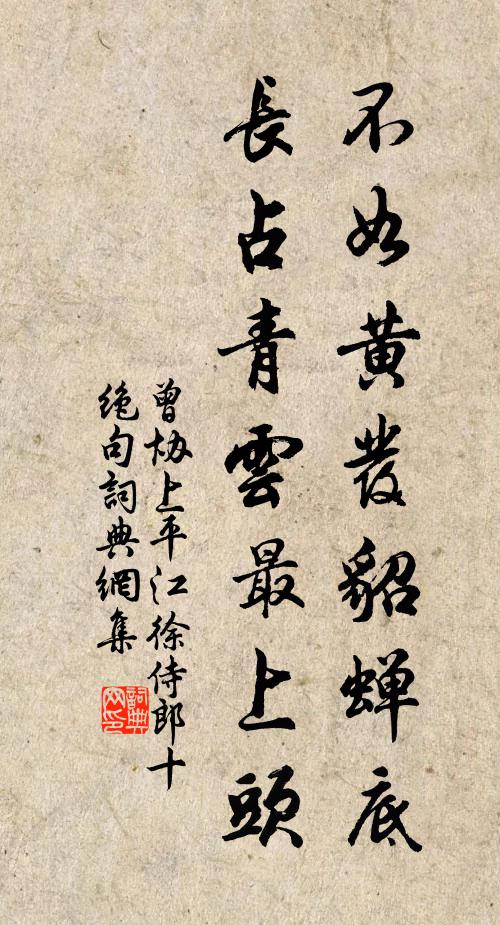 不如黄發貂蝉底
長占青雲最上頭
曾協上平江徐侍郎十
絶句詞典網集
詞典网印